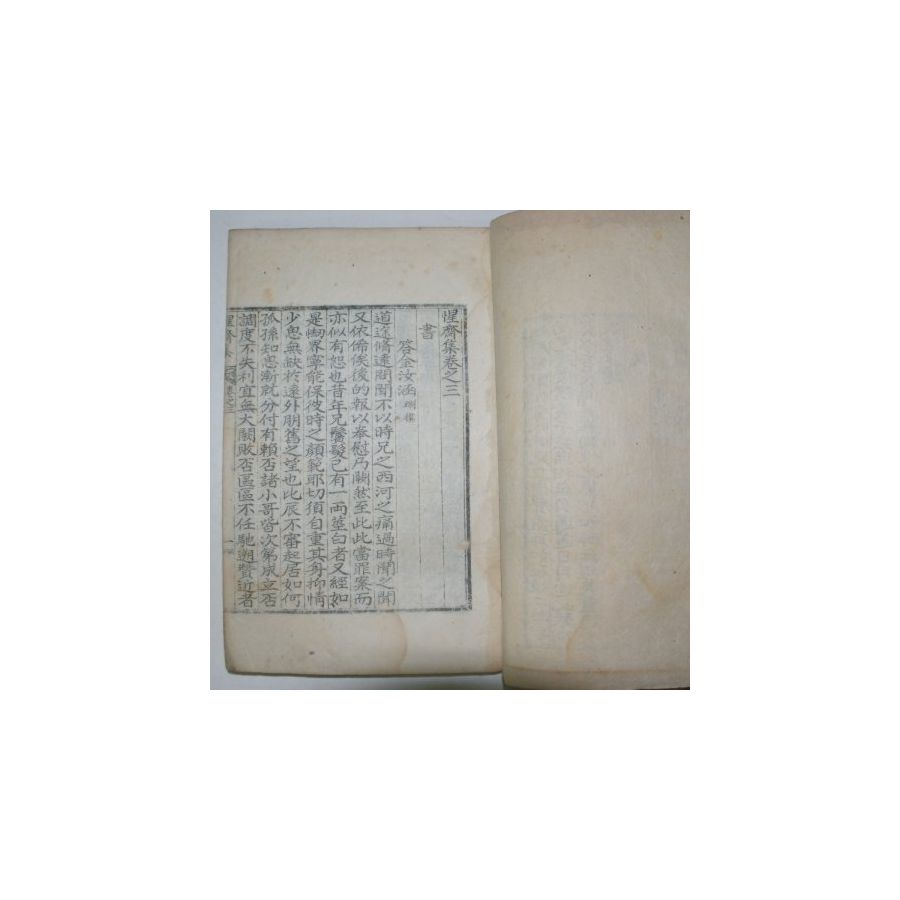 惺齋集卷之三
書
答金汝涵
道途脩遠聞聞不以時兄之西河之痛過時聞之聞
又依俙俟後的報以奉慰乃闕然至此此當罪案而
亦似有恕也昔年兄鬢髮已有一兩莖白者又經如
是㘅界寧能保彼時之顔範耶切須自重其身抑情
少忠無缺於遠外朋舊之望也此辰不審起居如何
孤孫知思漸就分付有賴否諸小哥皆次第成立否
調度不失利宜無大闕敗否區區不任馳遡贊近者
惺齋集 卷之三 一